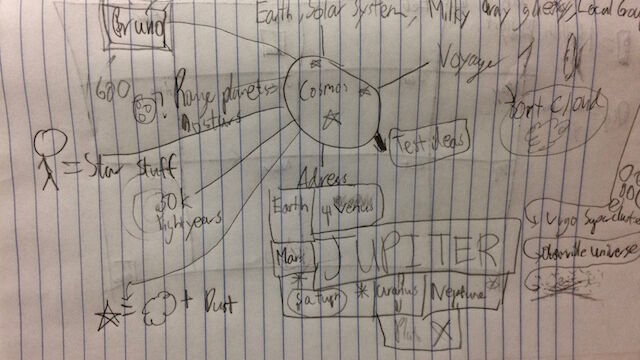 Earth, Solar System, Milky Way galaxy, Local Group
Bruno
Voyager 1
1600
Cosmos
Rouge planets
no stars
Oort Cloud
Test ideas
= Star Stuff
30k
lightyears
Adress
Earth
Venus
Mars
JUPITER
Saturn
Uranus
Neptune
Virgo Supercluster
Observible universe
= + Dust